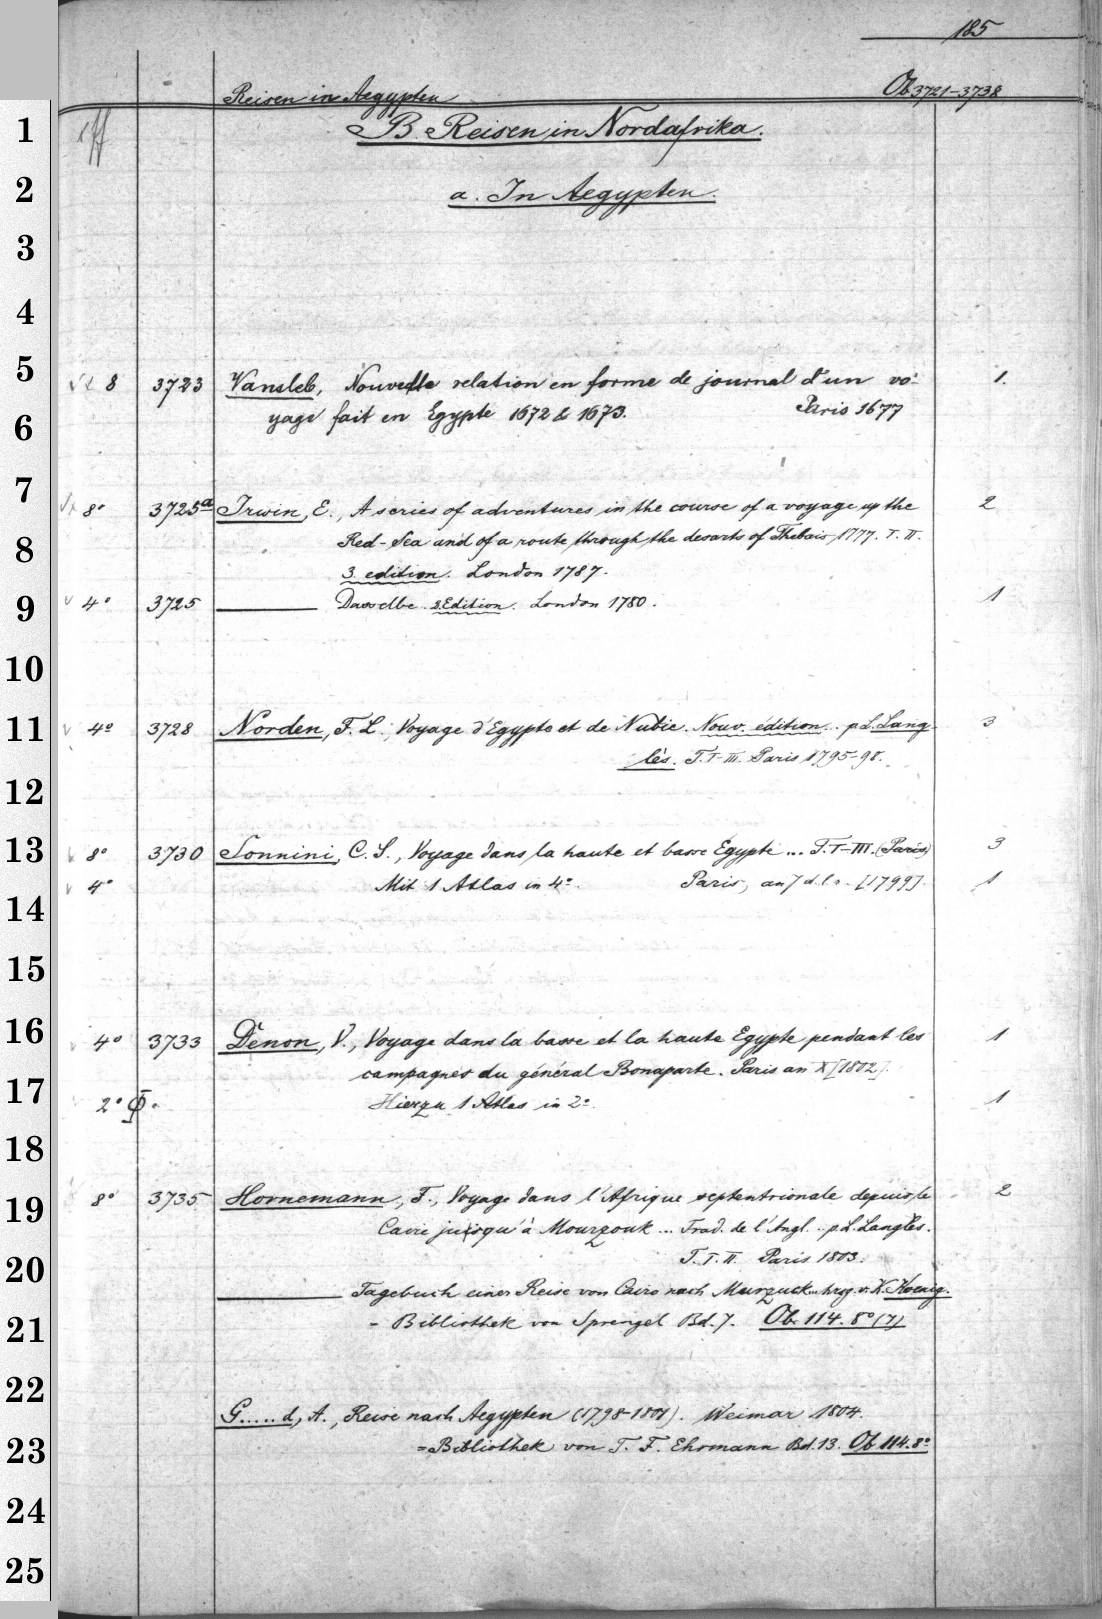 185
Reisen in Aegypten Ob 3721-3738
1 B. Reisen in Nordafrika.
2 a. In Aegypten.
3
4
5 8 3723 Vansleb, Nouvelle relation en forme de journal d'un vo- 1.
6 yage fait en Egypte 1672 & 1673. Paris 1677
7 8° 3725a Irwin, E., A series of adventures in the course of a voyage up the 2
8 Red-Sea and of a route through the desarts of Thebais, 1777. T. I. II.
3. edition. London 1787.
9 4° 3725 ——— Dasselbe. 2. Edition. London 1780. 1
10
11 4° 3728 Norden, F. L., Voyage d'Egypte et de Nubie. Nouv. édition .. p. L. Lang- 3
lès. T. I-III. Paris 1795-98.
12
13 8° 3730 Sonnini, C. S., Voyage dans la haute et basse Egypte ... T. I-III. (Paris) 3
4° Mit 1 Atlas in 4°. Paris, an 7 d. l. r. [1799]. 1
14
15
16 4° 3733 Denon, V., Voyage dans la basse et la haute Egypte pendant les 1
campagnes du général Bonaparte. Paris an X [1802].
17 2° Hierzu 1 Atlas in 2°. 1
18
19 8° 3735 Hornemann, F., Voyage dans l'Afrique septentrionale depuis le 2
Caire jusqu'à Mourzouk ... Trad. de l'Angl. .. p. L. Langlès.
20 T. I. II. Paris 1803.
——— Tagebuch einer Reise von Cairo nach Murzuck .. hrsg. v. K. Koenig.
21 = Bibliothek von Sprengel Bd. 7. Ob 114. 8° (7)
22
G.....d, A., Reise nach Aegypten (1798-1801). Weimar 1804.
23 = Bibliothek von T. F. Ehrmann Bd. 13. Ob 114. 8°
24
25